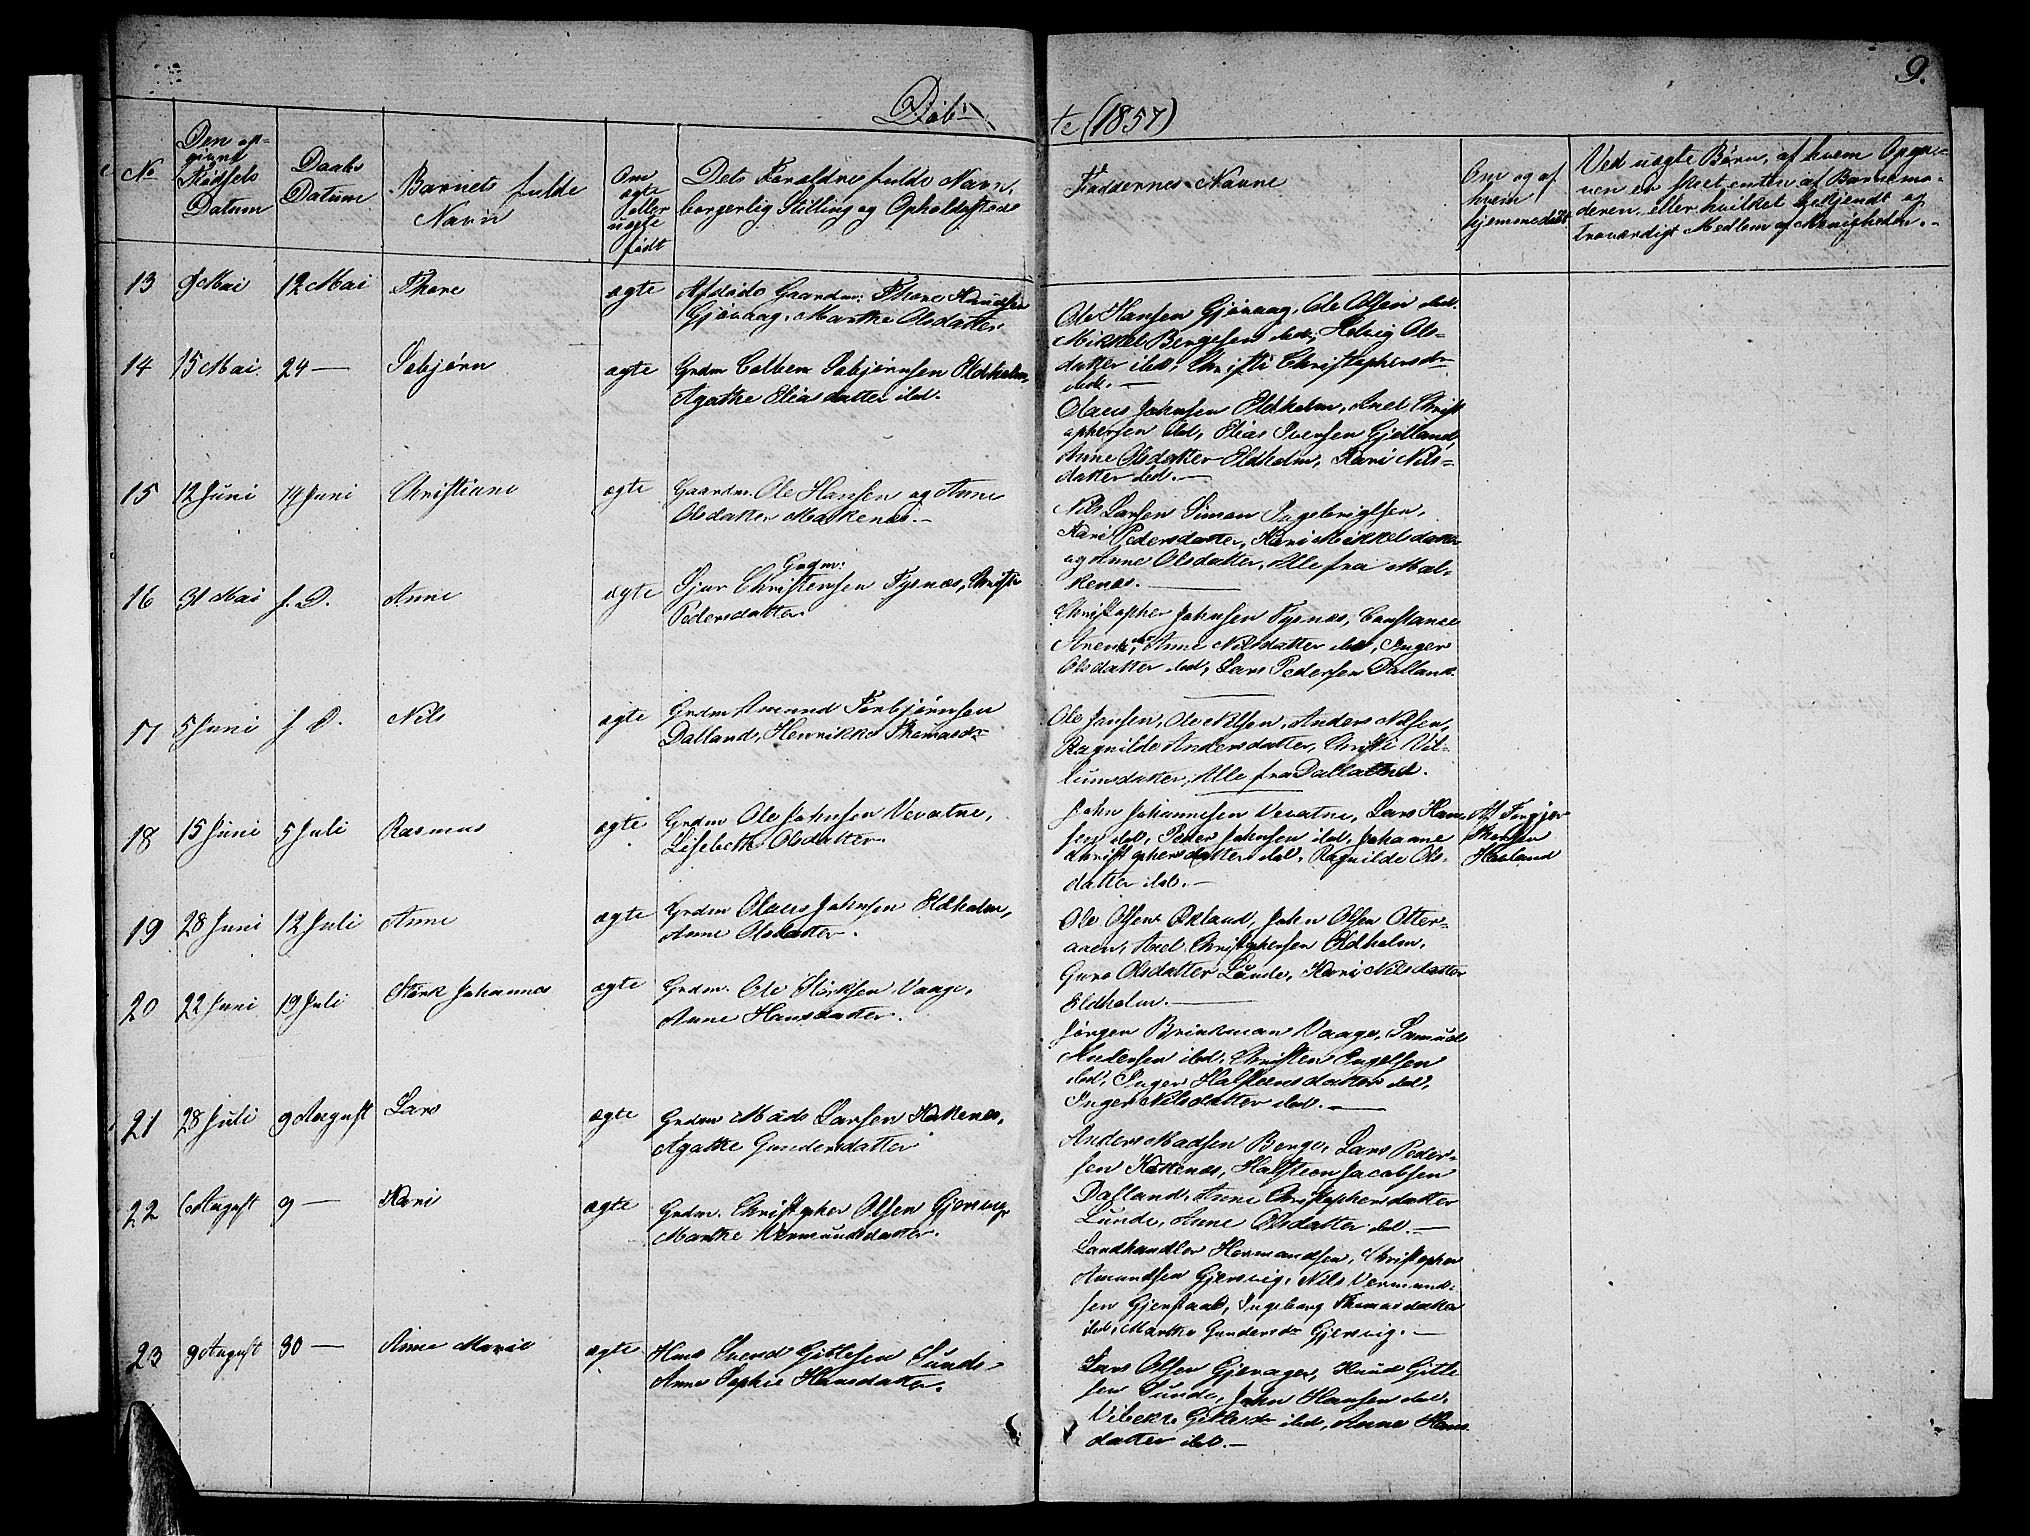 9.
Døb-
te (1857)
No
Den op-
givne
Fødsels
Datum
Daabs
Datum
Barnets fulde
Navn
Om
ægte
eller
uægte
født
Dets Foreldres fulde Navn,
borgerlig Stilling og Opholdssted
Faddernes Navne
Om og af
hvem
hjemmedøbt
Ved uægte Børn, af hvem Opga-
ven er skeet, enten af Barnemo-
deren, eller hvilket bekjendt og
troværdigt Medlem af Menigheden.
13 9 Mai 12 Mai Thore ægte
Afdøde Gaardm: Thore Knudsen
Gjøvaag, Marthe Olsdatter
Ole Hansen Gjøvaag, Ole Olsen ibd.
Mikkel Børgesen ibd, Helvig Ols-
datter ibd, Christi Christophersdr
ibd.
14 15 Mai 24 — Sebjørn ægte
Grdm Colben Sebjørnsen Eldholm,
Agathe Eliasdatter ibd.
Olaus Johnsen Eldholm, Axel Christ
ophersen ibd, Elias Iversen Gjelland,
Anne Olsdatter Eldholm, Kari Nils-
datter ibd.
15 12 Juni 14 Juni Christiane ægte
Gaardm. Ole Hansen og Anne
Olsdatter Malkenes.
Nils Larsen Simon Ingebrigtsen,
Kari Pedersdatter, Kari Mikkelsdatter
og Anne Olsdatter, Alle fra Mal-
kenes.
16 31 Mai s. D. Anne ægte
Grdm:
Sjur Christensen Tysnes, Christi
Pedersdatter
Christopher Johnsen Tysnes, Constance
Anne Nilsdatter ibd, Inger
Olsdatter ibd, Lars Pedersen Dalland.
17 5 Juni s. D. Nils ægte
Grdm Amund Torbjørnsen
Dalland, Henrikke Thomasdr
Ole Jansen, Ole Nilsen, Anders Nilsen,
Ragnilde Andersdatter, Christi Vil-
lumsdatter, Alle fra Dalland.
18 15 Juni 5 Juli Rasmus ægte
Grdm Ole Johnsen Vevatne,
Lisebeth Olsdatter.
John Johannesen Vevatne, Lars Han-
sen ibd, Peder Johnsen ibd, Johanne
Christophersdatter ibd, Ragnilde Ols-
datter ibd.
Af Torgjer
Thorsen
Hovland
19 28 Juni 12 Juli Anne ægte
Grdm Olaus Johnsen Eldholm,
Anne Olsdatter.
Ole Olsen Økland, John Olsen Otter-
aaen, Axel Christophersen Eldholm,
Guro Olsdatter Lunde, Kari Nilsdatter
Eldholm.
20 22 Juni 19 Juli Størk Johannes ægte
Grdm. Ole Størksen Vaage,
Anne Hansdatter.
Jørgen Brinkman Vaage, Samuel
Andersen ibd, Christen Engelsen
ibd, Inger Halsteensdatter ibd,
Inger Nilsdatter ibd.
21 28 Juli 9 August Lars ægte
Grdm Mads Larsen Kakenes,
Agathe Gundersdatter
Anders Madsen Berge, Lars Peder-
sen Kakenes, Halsteen Jacobsen
Dalland, Anne Christophersdatter
Lunde, Anne Olsdatter ibd.
22 6 August 9 — Kari ægte
Grdm. Christopher Olsen Gjersvig,
Marthe Vermundsdatter.
Landhandler Hermandsen, Christopher
Amundsen Gjersvig, Nils Vermund-
sen Gjerstad, Ingeborg Thomasdatter
ibd, Marthe Gundersdr Gjersvig.
23 9 August 30 — Anne Marie ægte
Hmd Svend Gittesen Sunde
Anne Sophie Hansdatter.
Lars Olsen Gjevager, Knud Gitte
sen Sunde, John Hansen ibd,
Vibekke Gittesdr ibd, Anne Hans
datter ibd.